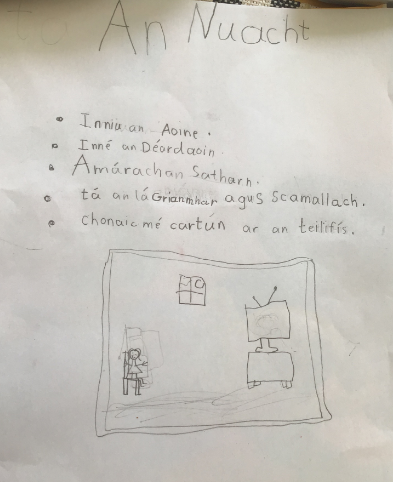 An Nuacht
• Inniu an Aoine.
• Inné an Déardaoin.
• Amárachan Satharn.
• tá an lá Grianmhar agus Scamallach.
• chonaic mé cartún ar an teilifís.